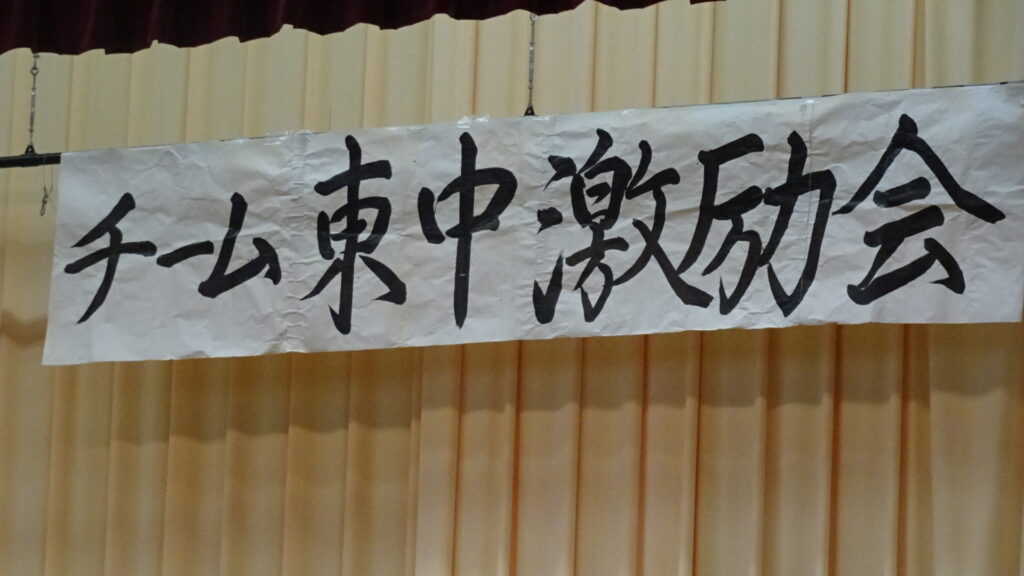 チーム東中激励会